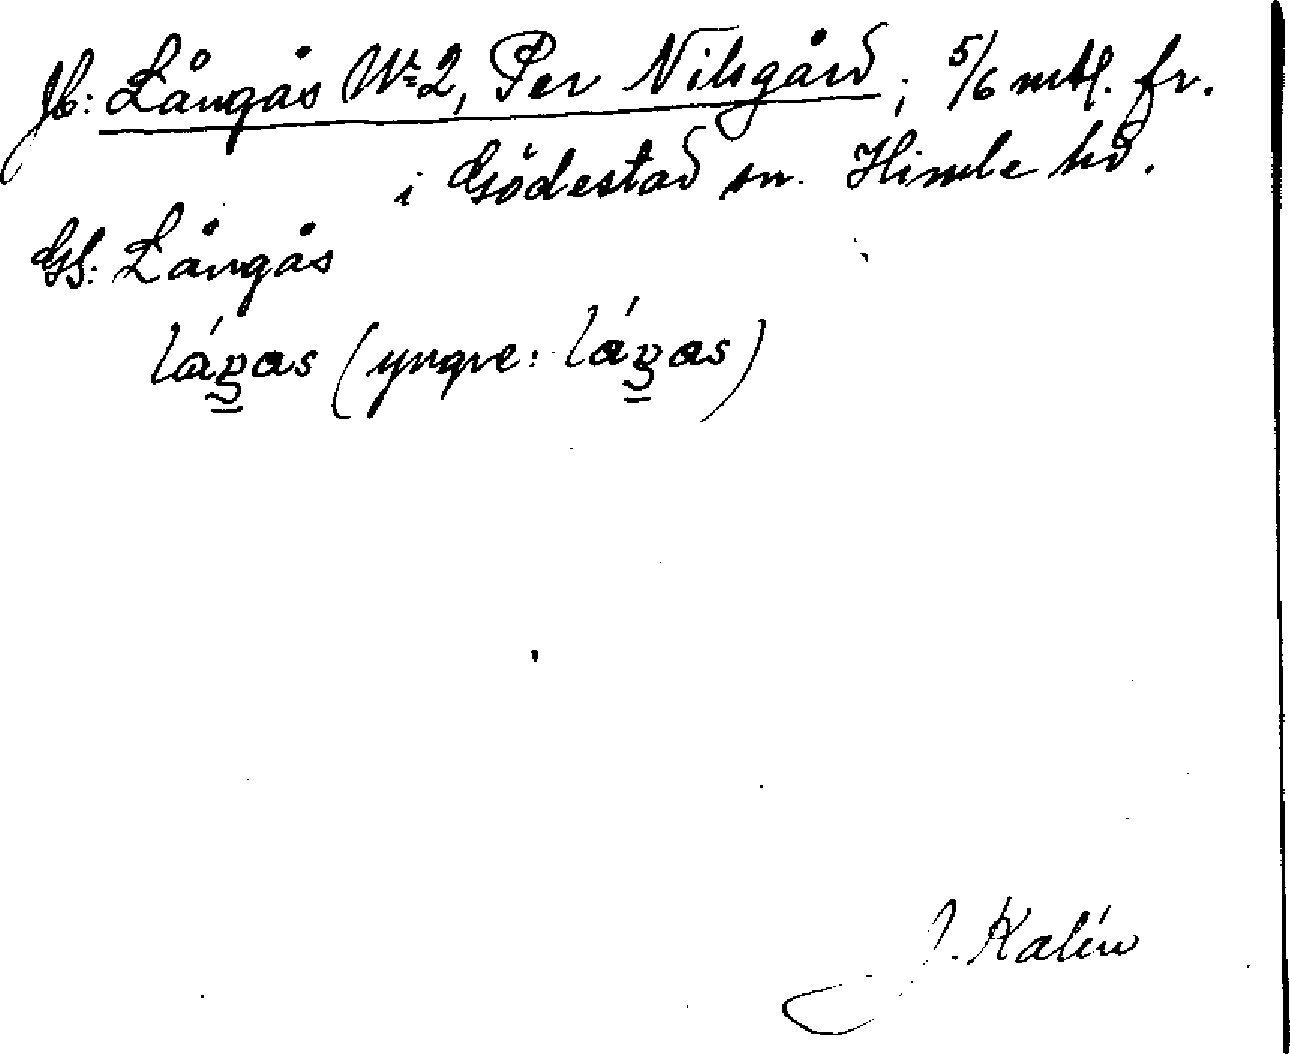 Jb: Långås Nº 2, Per Nilsgård; 5/6 mtl. fr.
i Gödestad sn. Himle hd.
GS: Långås
láŋas (yngre: láŋas)
J. Kalén